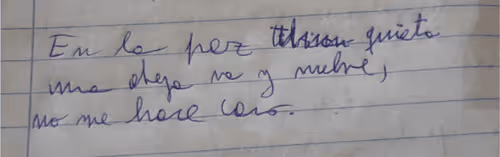 En la paz quieta
una abeja va y vuelve,
no me hace caso.